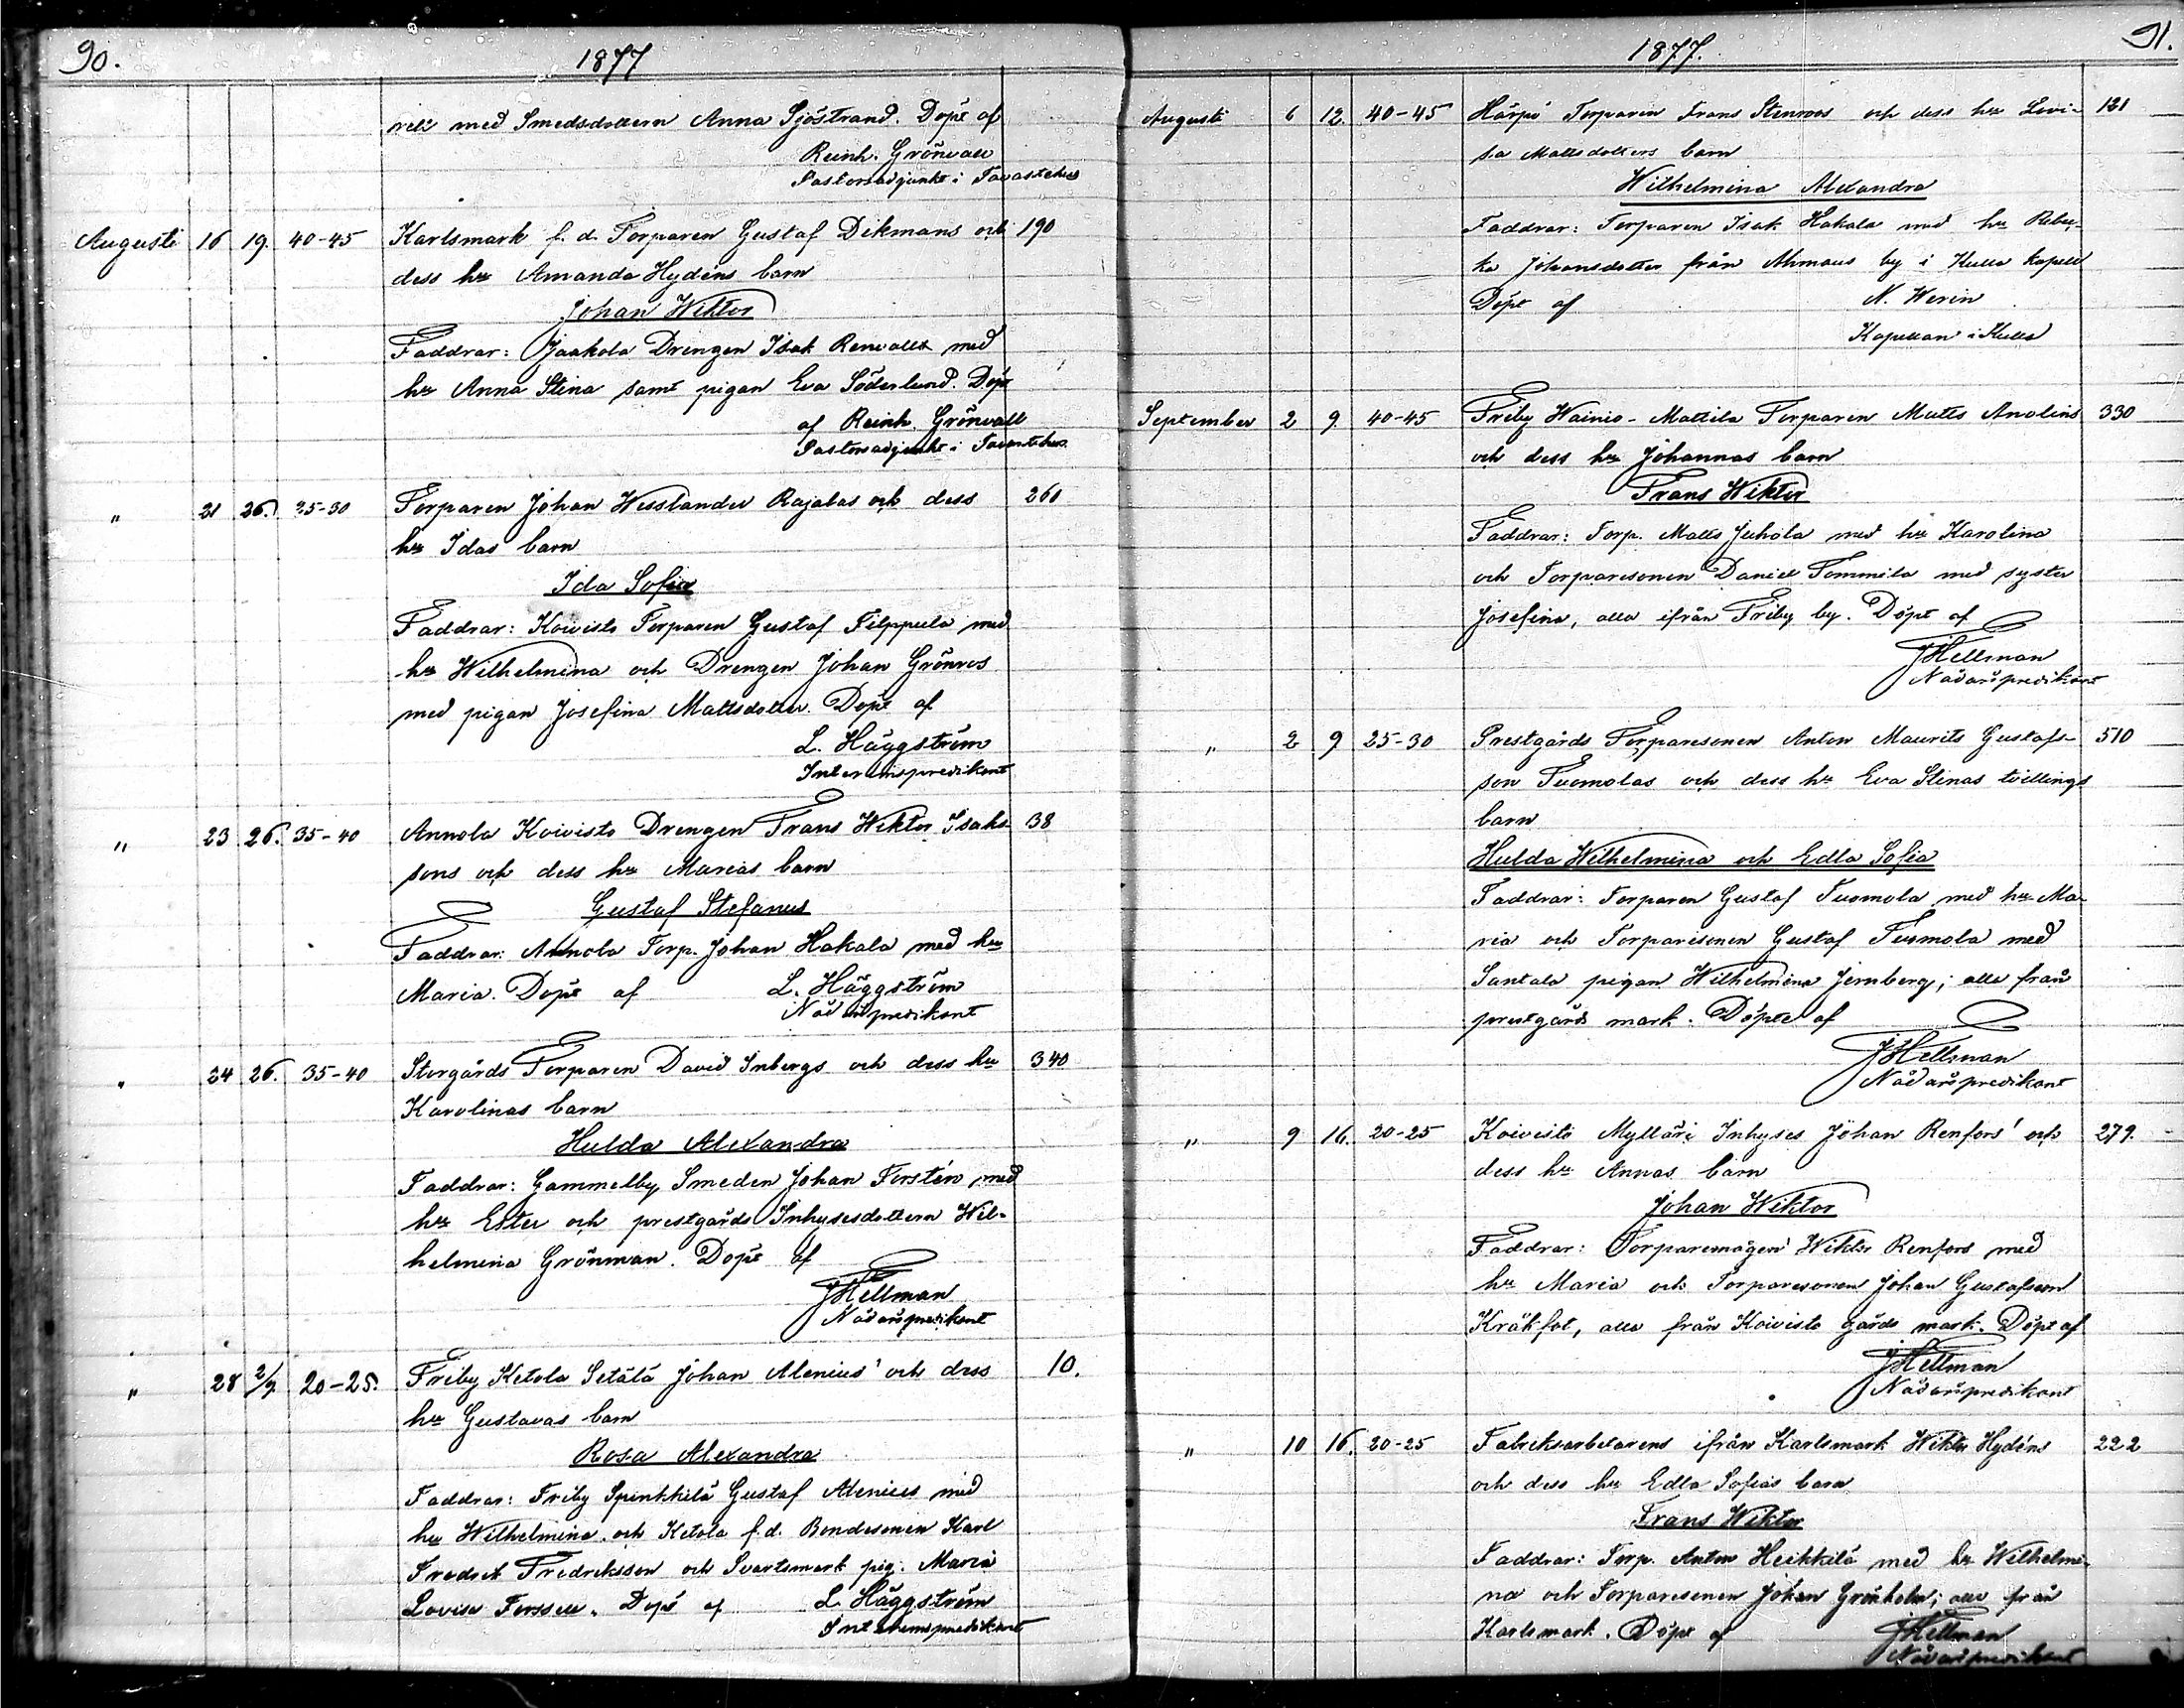 90.
1877
reli med Smedsdottern Anna Sjöstrand. Döpt af
Reinh. Grönvall
Pastorsadjunkt i Tavastehus
Augusti 16 19. 40-45 Karlsmark f. d. Torparen Gustaf Dikmans och 190
dess hu Amanda Hydéns barn
Johan Wiktor
Faddrar: Jaakola Drengen Isak Renvalls med
hu Anna Stina samt pigan Eva Söderlund. Döpt
af Reinh. Grönvall
Pastorsadjunkt i Tavastehus
" 21 26. 25-30 Torparen Johan Wesslander Rajalas och dess 260
hu Idas barn
Ida Sofia
Faddrar: Koivisto Torparen Gustaf Filppula med
hu Wilhelmina och Drengen Johan Grönros
med pigan Josefina Mattsdotter. Döpt af
L. Häggström
Interimspredikant
" 23 26. 35-40 Annola Koivisto Drengen Frans Wiktor Isaks- 38
sons och dess hu Marias barn
Gustaf Stefanus
Faddrar: Annola Torp. Johan Hakala med hu
Maria. Döpt af L. Häggström
Nådårspredikant
" 24 26. 35-40 Storgårds Torparen David Inbergs och dess hu 340
Karolinas barn
Hulda Alexandra
Faddrar: Gammelby Smeden Johan Forstén med
hu Ester och prestgårds Inhysesdottern Wil-
helmina Grönman. Döpt af
JHellman
Nådårspredikant
" 28 2/9 20-25. Friby Ketola Setälä Johan Alenius' och dess 10.
hu Gustavas barn
Rosa Alexandra
Faddrar: Friby Spinkkilä Gustaf Alenius med
hu Wilhelmina och Ketola f.d. Bondesonen Karl
Fredrik Fredriksson och Svartsmark pig. Maria
Lovisa Forssell. Döpt af L. Häggström
Interimspredikant
91.
1877.
Augusti 6 12. 40-45 Härpö Torparen Frans Stenroos och dess hu Lovi- 121
sa Mattsdotters barn
Wilhelmina Alexandra
Faddrar: Torparen Isak Hakala med hu Rebec-
ka Johansdotter från Ahmaus by i Kulla kapell
Döpt af N. Werin
Kapellan i Kulla
September 2 9. 40-45 Friby Wainio-Mattila Torparen Matts Anolins 330
och dess hu Johannas barn
Frans Wiktor
Faddrar: Torp. Matts Juhola med hu Karolina
och Torparesonen Daniel Tommila med syster
Josefina, alla ifrån Friby by. Döpt af
JHellman
Nådårspredikant
" 2 9 25-30 Prestgårds Torparesonen Anton Maurits Gustafs- 510
son Tuomolas och dess hu Eva Stinas tvillings
barn
Hulda Wilhelmina och Edla Sofia
Faddrar: Torparen Gustaf Tuomola med hu Ma-
ria och Torparesonen Gustaf Tuomola med
Santala pigan Wilhelmina Jernberg; alla från
prestgårds mark. Döpte af
JHellman
Nådårspredikant
" 9 16. 20-25 Koivisto Mylläri Inhyses Johan Renfors' och 279.
dess hu Annas barn
Johan Wiktor
Faddrar: Torparemågen Wiktor Renfors med
hu Maria och Torparesonen Johan Gustafsson
Kräkfot, alla från Koivisto gårds mark. Döpt af
JHellman
Nådårspredikant
" 10 16. 20-25 Fabriksarbetarens ifrån Karlsmark Wiktor Hydéns 222
och dess hu Edla Sofias barn
Frans Wiktor
Faddrar: Torp. Anton Heikkilä med hu Wilhelmi-
na och Torparesonen Johan Grönholm; alla från
Karlsmark. Döpt af JHellman
Nådårspredikant